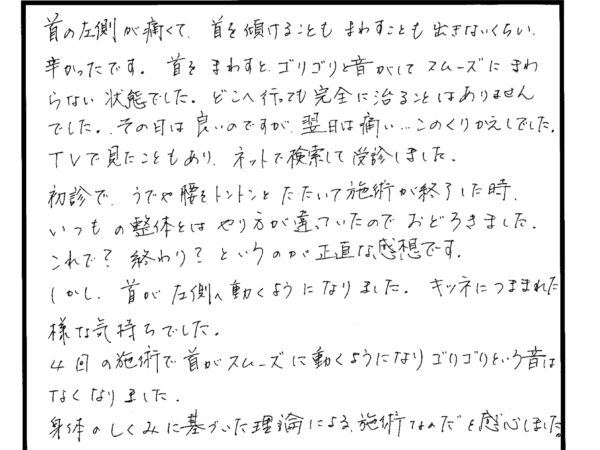 首の左側が痛くて、首を傾けることも まわすことも 出きないくらい、
辛かったです。首を まわすと、ゴリゴリと音がして スムーズに まわ
らない 状態でした。どこへ行っても 完全に治ることは ありません
でした。その日は 良いのですが、翌日は痛い…このくりかえしでした。
TVで見たこともあり、ネットで検索して受診しました。
初診で、うでや腰をトントンと たたいて施術が終了した時、
いつもの整体とは やり方が違っていたので おどろきました。
これで？ 終わり？ というのが正直な感想です。
しかし、首が左側へ動くようになりました。キツネにつままれた
様な気持ちでした。
4回の施術で首がスムーズに動くようになり ゴリゴリという音は
なくなりました。
身体のしくみに基づいた理論による、施術なのだと感心しました。